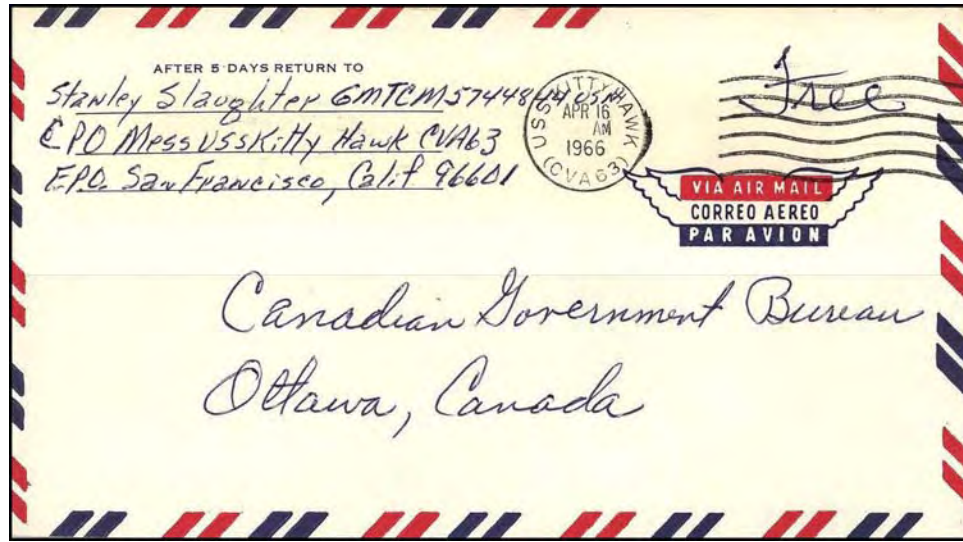 AFTER 5 DAYS RETURN TO
Stanley Slaughter GMTCM 5744844 USN
CPO Mess USS Kitty Hawk CVA63
F.P.O. San Francisco, Calif 96601
USS KITTY HAWK (CVA63)
APR 16
AM
1966
Free
VIA AIR MAIL
CORREO AEREO
PAR AVION
Canadian Government Bureau
Ottawa, Canada